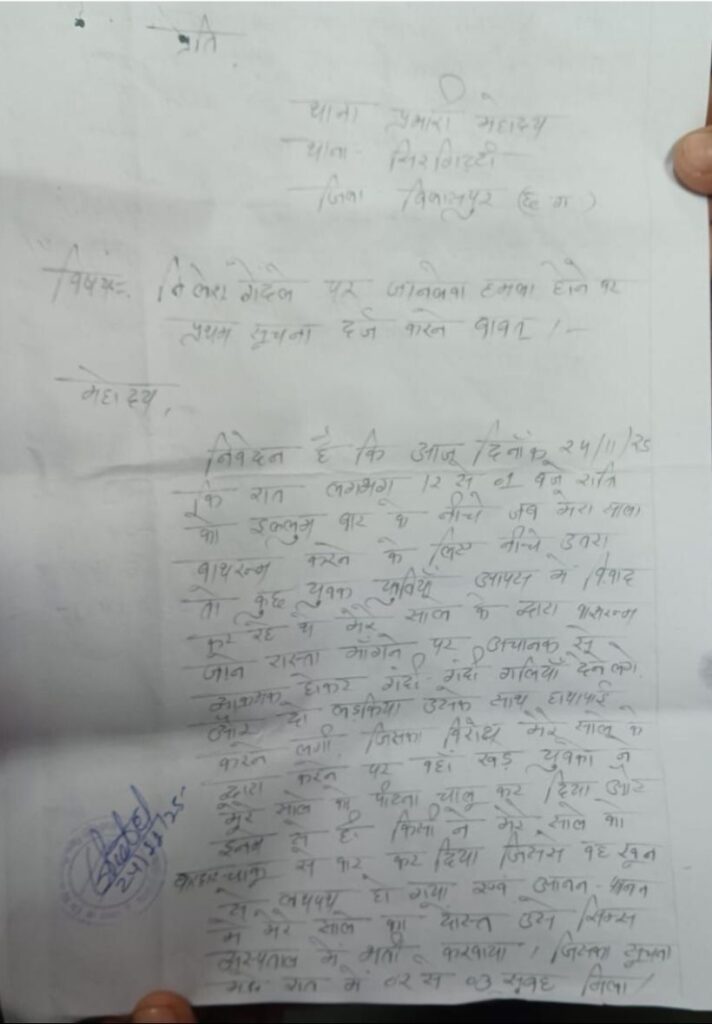 प्रति
थाना प्रभारी महोदय
थाना - सिरगिट्टी
जिला - बिलासपुर (छ ग )
विषय:- गेंदले पर जानलेवा हमला होने पर
प्रथम सूचना दर्ज करने बाबत् ।-
महोदय,
निवेदन है कि आज दिनाँक 24/11/25
कि रात लगभग 12 से 01 बजे रात्रि
को बार के नीचे जब मेरा साला
बाथरूम करने के लिए नीचे उतरा
तो कुछ युवक युवतियाँ आपस में विवाद
कर रहे थे मेरे साले के द्वारा बाथरूम
जाने रास्ता माँगने पर अचानक से
होकर गंदी-गंदी गालियाँ देने लगे
और दो लडकिया उसके साथ हाथापाई
करने लगी, जिसका विरोध मेरे साले के
द्वारा करने पर वहाँ खड़े युवकों ने
मेरे साले को पीटना चालू कर दिया और
इनमें से ही किसी ने मेरे साले को
धारदार चाकू से वार कर दिया जिससे वह खून
से लथपथ हो गया एवं आनन-फानन
में मेरे साले का दोस्त उसे सिम्स
अस्पताल में भर्ती करवाया । जिसका सूचना
रात में 02 से 03 सुबह मिला।
24/11/25